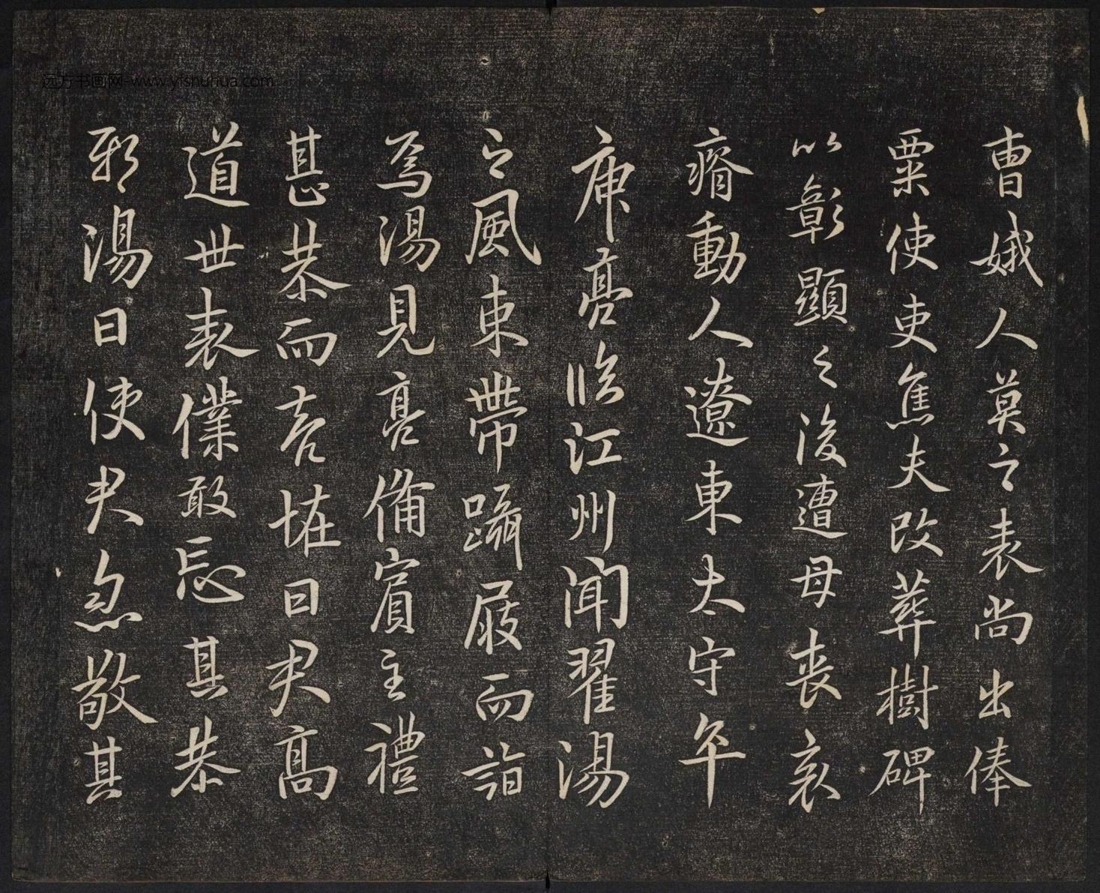 曹娥人莫之表尚出俸
粟使吏焦夫改葬樹碑
以彰顯之後遭母喪哀
瘠動人遼東太守年
庾亮臨江州聞翟湯
之風束帶躡屐而詣
焉湯見亮備賓主禮
甚恭而言往曰君高
道世表僕敢忘其恭
邪湯曰使君自敬其
远方书画网-www.yishuhua.com